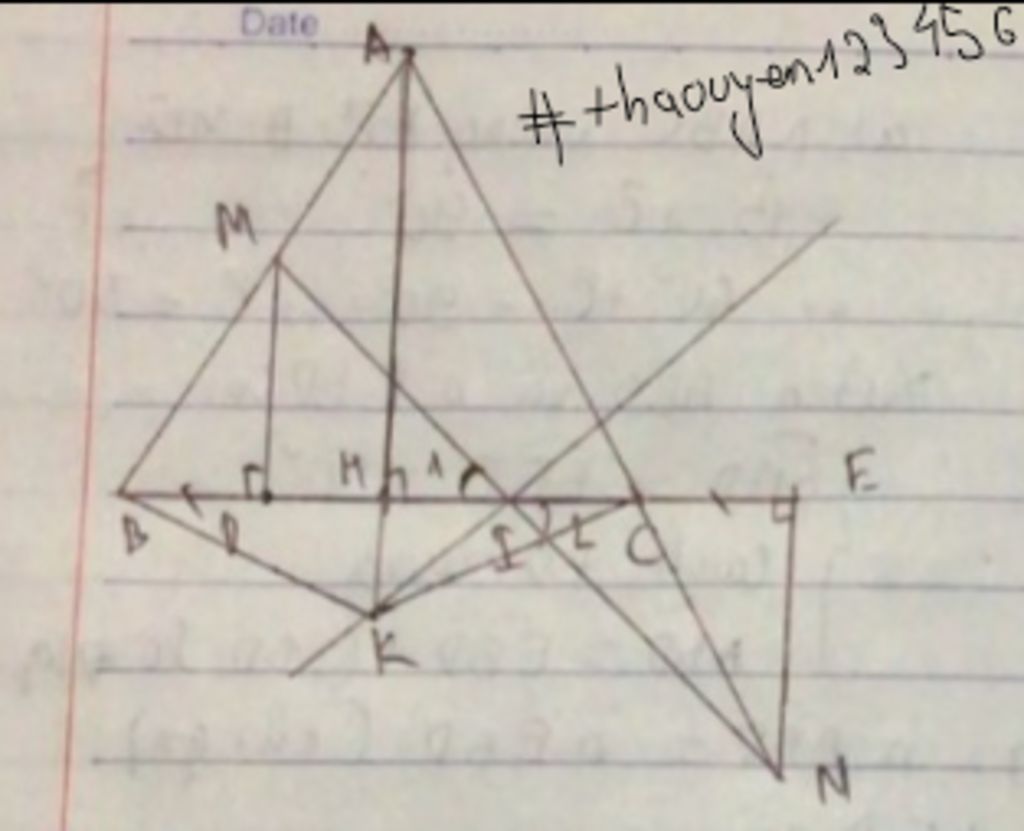 Date
#thaouyen123456
A
M
H 1
E
B
D
I 2
C
K
N